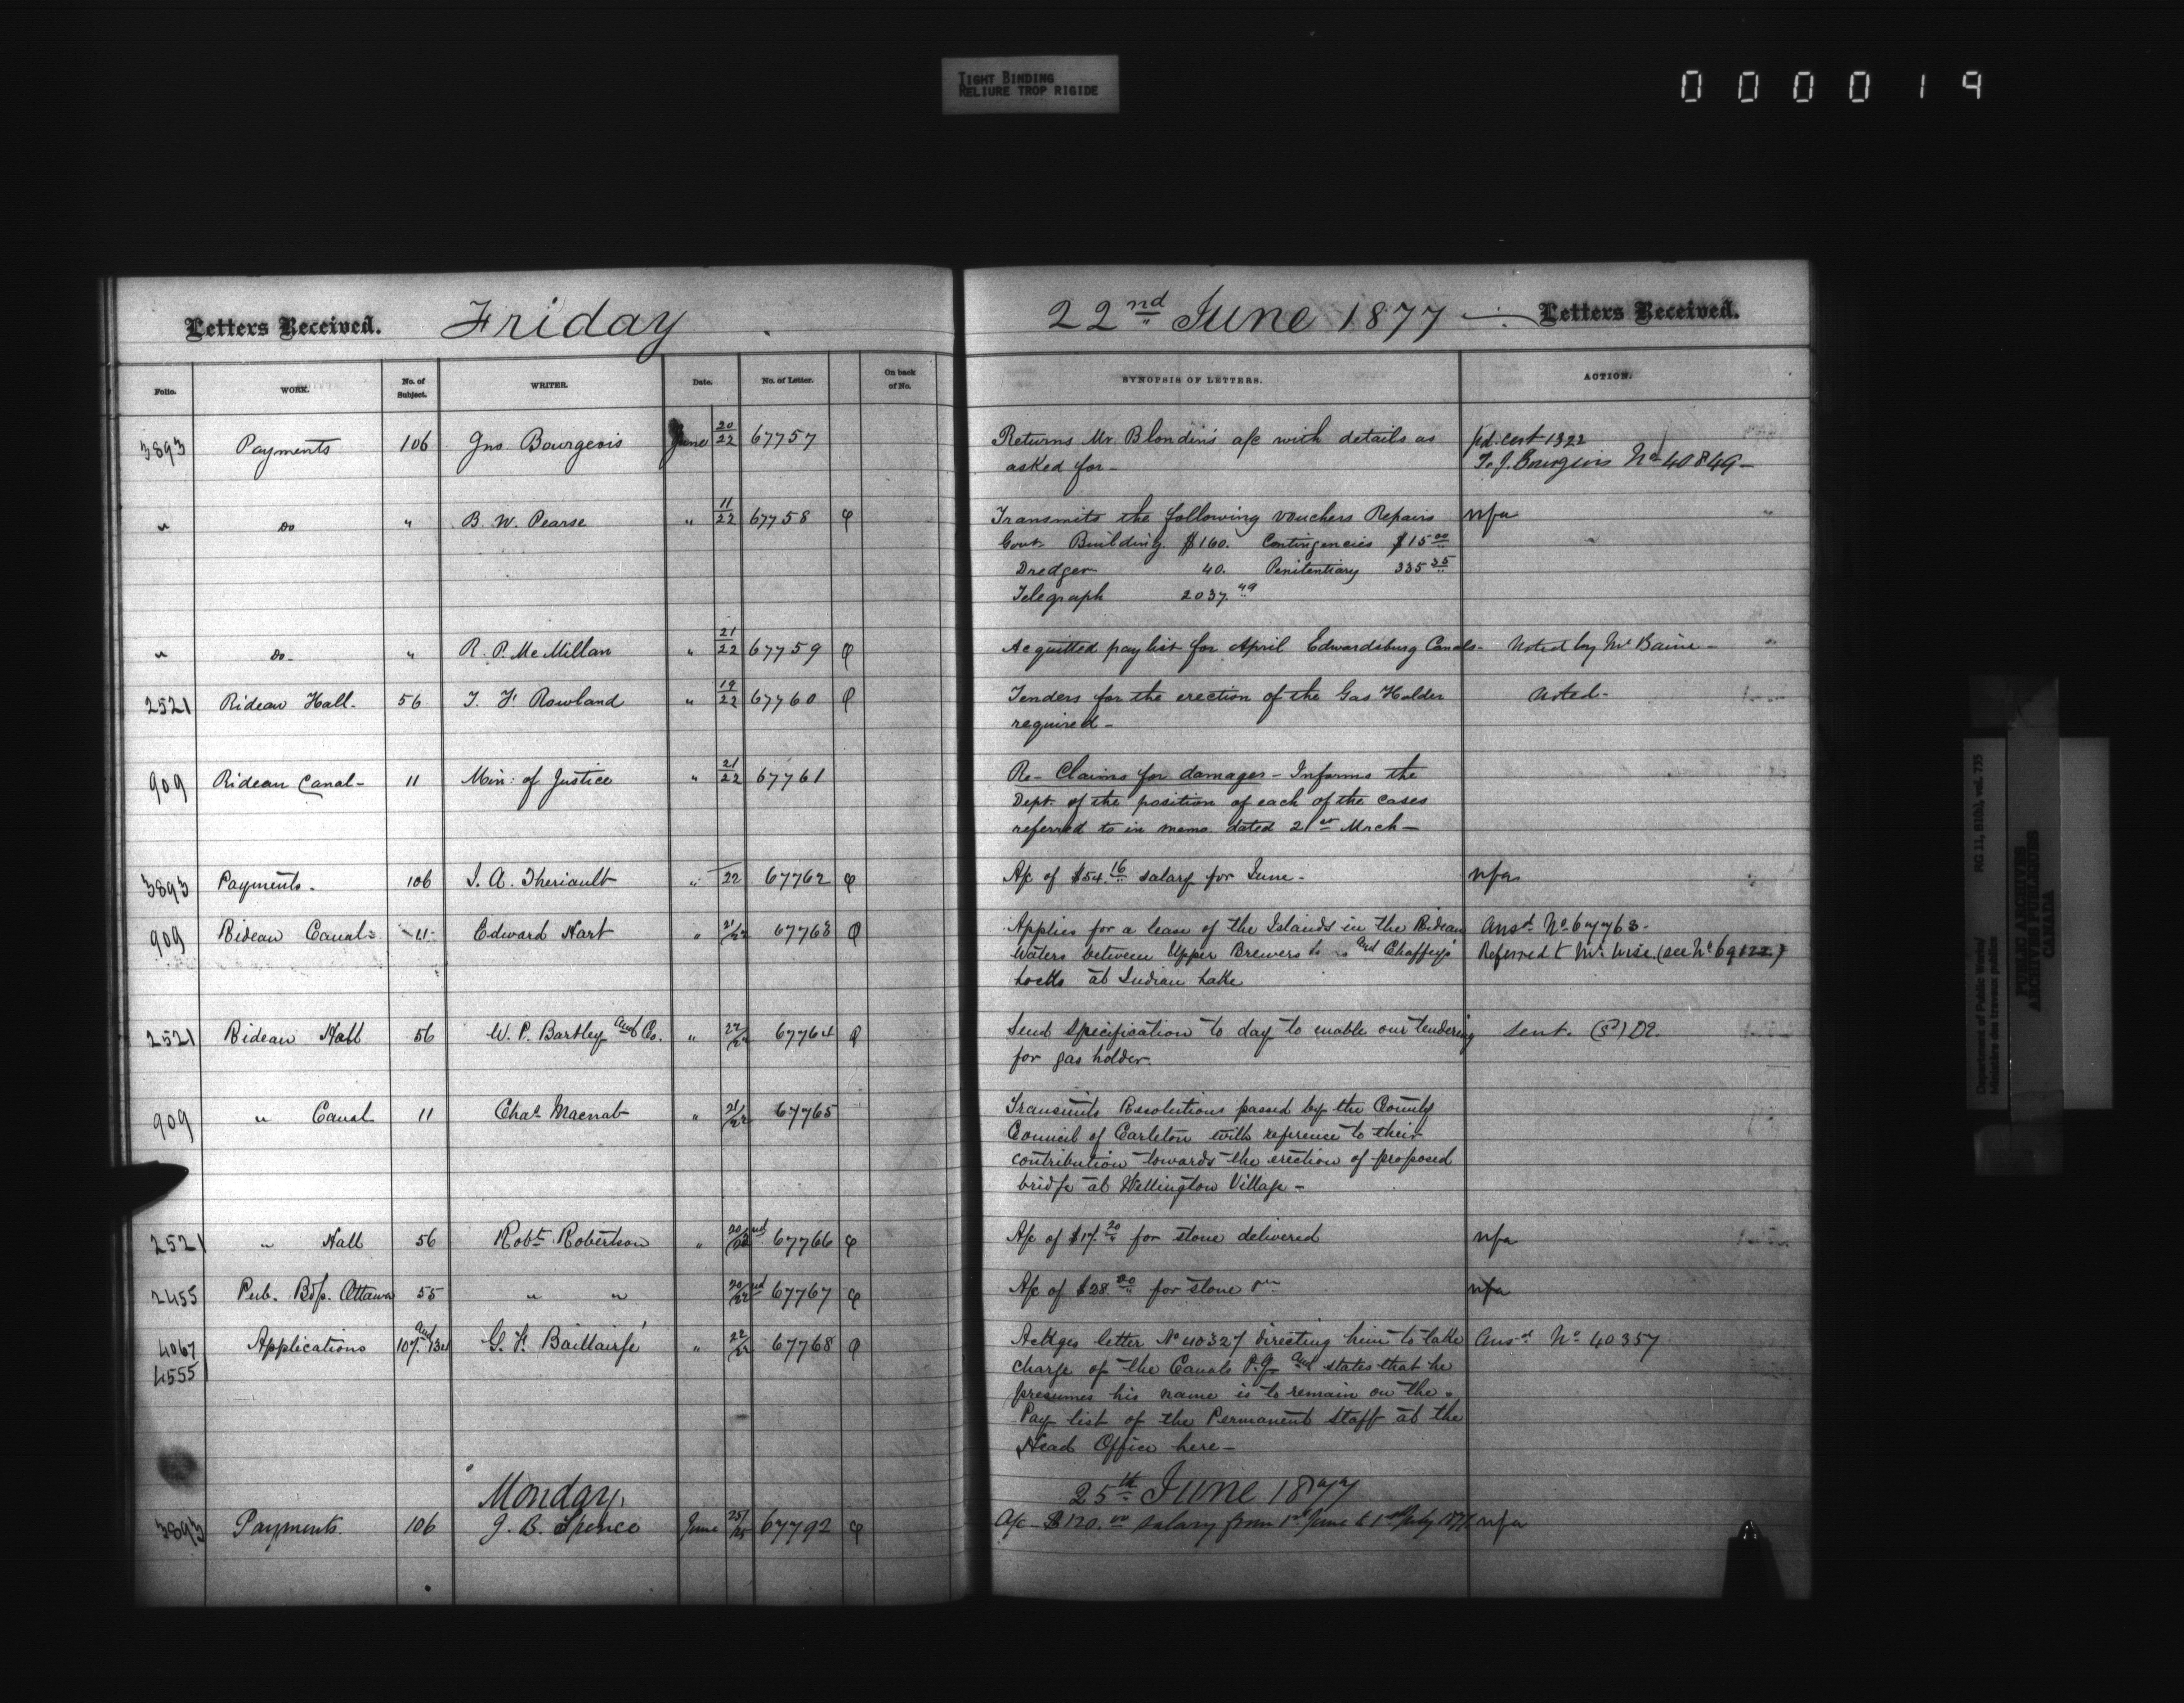 TIGHT BINDING
RELIURE TROP RIGIDE
000019
Letters Received. Friday 22nd June 1877 Letters Received.
Folio. WORK. No. of Subject. WRITER. Date. No. of Letter. On back of No. SYNOPSIS OF LETTERS. ACTION.
3893 Payments 106 Jno Bourgeois June 20/22 67757 Returns Mr. Blondin's a/c with details as pd. cert 1322
asked for- To J. Bourgeois No 40849-
" Do " B. W. Pearse " 11/22 67758 φ Transmits the following vouchers Repairs nfa
Govt. Building. $160. Contingencies $15 00
Dredger 40. Penitentiary 335 35
Telegraph 2037. 49
" Do- " R. P. McMillan " 21/22 67759 φ Acquitted paylist for April Edwardsburg Canals- Noted by Mr Baine-
2521 Rideau Hall- 56 T. F. Rowland " 19/22 67760 φ Tenders for the erection of the Gas Holder Noted-
required-
909 Rideau Canal- 11 Min: of Justice " 21/22 67761 Re- Claims for damages- Informs the
Dept. of the position of each of the cases
referred to in memo dated 21st Mrch-
3893 Payments. 106 J. A. Theriault " 22 67762 φ A/c of $54.16 salary for June- nfa
909 Rideau Canal 11 Edward Hart " 21/22 67763 φ Applies for a lease of the Islands in the Rideau Ansd No 67763-
Waters between Upper Brewers and Chaffey's Referred to Mr. Wise. (see No 69122)
Locks at Indian Lake
2521 Rideau Hall 56 W. P. Bartley and Co. " 22/22 67764 φ Send specification to day to enable our tendering sent.
for gas holder.
909 " Canal 11 Chas Macnab " 21/22 67765 Transmits Resolutions passed by the County
Council of Carleton with reference to their
contribution towards the erection of proposed
bridge at Wellington Village-
2521 " Hall 56 Robt. Robertson " 20/22nd 67766 φ A/c of $17.20 for stone delivered nfa
2455 Pub. Bdg. Ottawa 55 " " 20/22nd 67767 φ A/c of $28.20 for stone nfa
4067 Applications 107 and 134 G. F. Baillairgé " 22/22 67768 φ Ackges letter No 40327 directing him to take Ansd No 40357
4555 charge of the Canals P.Q. and states that he
presumes his name is to remain on the
Pay list of the Permanent Staff at the
Head Office here-
Monday, 25th June 1877
3893 Payments. 106 J. B. Spence June 25/25 67792 φ A/c $120.00 salary from 1st June to 1st July 1877 nfa
Department of Public Works/ RG 11, B1(b), vol. 735
Ministère des travaux publics
PUBLIC ARCHIVES
ARCHIVES PUBLIQUES
CANADA